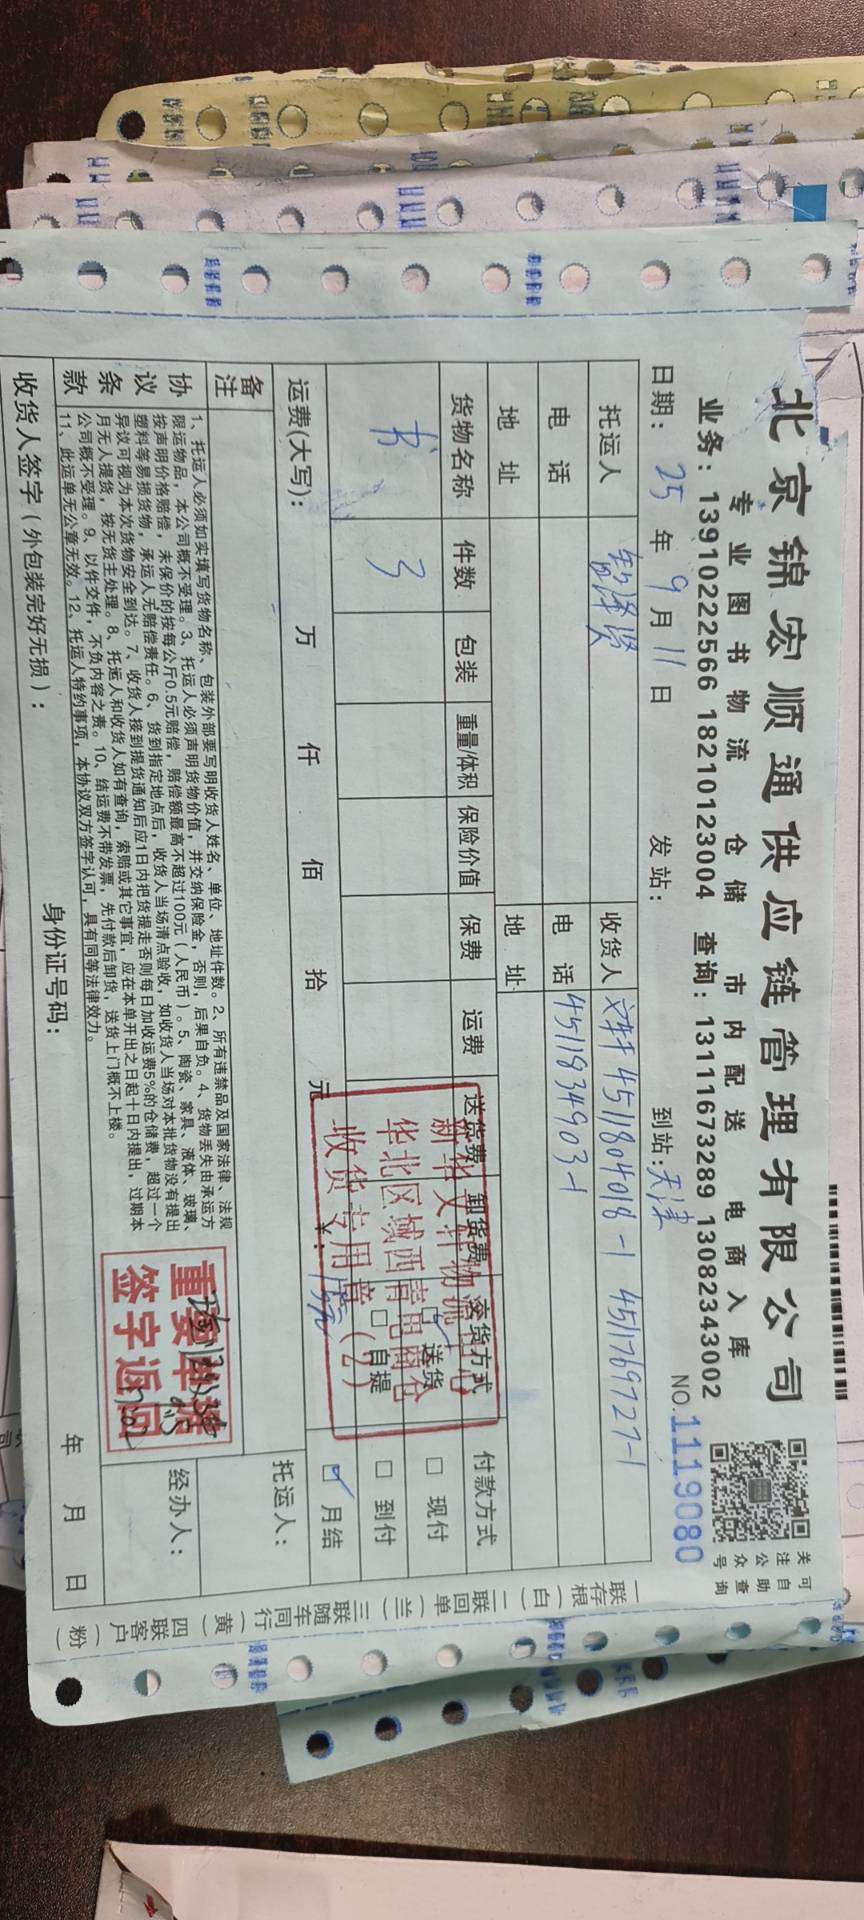 北京锦宏顺通供应链管理有限公司
专业图书物流 仓储 市内配送 电商入库
业务：13910222566 18210123004 查询：13111673289 13082343002
关注公众号
可自助查询
日期：25年9月11日 发站： 到站：天津 NO.1119080
托运人 智泽贤 收货人 文轩 4511804018-1 451769727-1
电话 电话 4511834903-1
地址 地址
货物名称 件数 包装 重量/体积 保险价值 保费 运费 送货费 卸货费 交货方式 付款方式
书 3 送货 现付
自提 到付
月结
运费(大写)： 万 仟 佰 拾 元 ￥：
新华文轩物流
华北区域西青电商仓
收货专用章（2）
备注
托运人：
协议条款
1、托运人必须如实填写货物名称、包装外部要写明收货人姓名、单位、地址件数。2、所有违禁品及国家法律、法规
限运物品，本公司概不受理。3、托运人必须声明货物价值，并交纳保险金，否则，后果自负。4、货物丢失由承运方
按声明价格赔偿，未保价的按每公斤0.5元赔偿，赔偿额最高不超过100元（人民币）。5、陶瓷、家具、液体、玻璃、
塑料等易损货物，承运人无赔偿责任。6、货到指定地点后，收货人当场清点验收，如收货人当场对本批货物没有提出
异议可视为本次货物安全到达。7、收货人接到提货通知后应1日内把货提走否则每日加收运费5%的仓储费，超过一个
月无人提货，按无货主处理。8、托运人和收货人如有查询，索赔或其它事宜，应在本单开出之日起十日内提出，过期本
公司概不受理。9、以件交件，不负内容之责。10、结运费不带发票，先付款后卸货，送货上门概不上楼。
11、此运单无公章无效。12、托运人特约事项，本协议双方签字认可，具有同等法律效力。
签字返回
经办人：
收货人签字（外包装完好无损）： 身份证号码： 年 月 日
一联存根（白） 二联回单（兰） 三联随车同行（黄） 四联客户（粉）